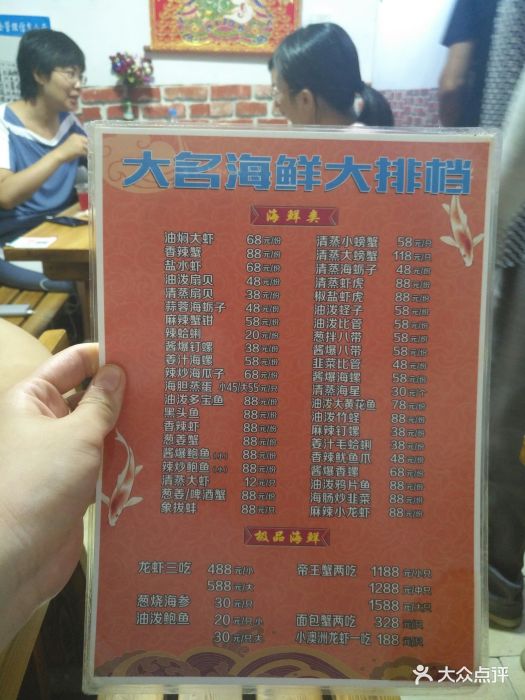 大名海鲜大排档
海鲜类
油焖大虾 68元/份
香辣蟹 88元/份
盐水虾 68元/份
油泼扇贝 48元/份
清蒸扇贝 38元/份
蒜蓉海蛎子 48元/份
麻辣蟹钳 58元/份
辣蛤蜊 20元/份
酱爆钉螺 38元/份
姜汁海螺 58元/份
辣炒海瓜子 68元/份
海胆蒸蛋 小45/大55元/只
油泼多宝鱼 88元/份
黑头鱼 88元/份
香辣虾 88元/份
葱姜蟹 88元/份
酱爆鲍鱼(小) 88元/份
辣炒鲍鱼(小) 88元/份
清蒸大虾 12元/只
葱姜/啤酒蟹 88元/份
象拔蚌 88元/份
清蒸小螃蟹 58元/只
清蒸大螃蟹 118元/只
清蒸海蛎子 48元/份
清蒸虾虎 88元/份
椒盐虾虎 88元/份
油泼蛏子 58元/份
油泼比管 58元/份
葱拌八带 58元/份
酱爆八带 58元/份
韭菜比管 48元/份
酱爆海螺 58元/份
清蒸海星 30元/个
油泼大黄花鱼 78元/份
油泼竹蛏 88元/份
麻辣钉螺 38元/份
姜汁毛蛤蜊 38元/份
香辣鱿鱼爪 48元/份
酱爆香螺 68元/份
油泼鸦片鱼 88元/份
海肠炒韭菜 88元/份
麻辣小龙虾 88元/份
极品海鲜
龙虾三吃 488元/小
588元/大
葱烧海参 30元/只
油泼鲍鱼 20元/只小
30元/只大
帝王蟹两吃 1188元/小只
1288元/中只
1588元/大只
面包蟹两吃 328元/只
小澳洲龙虾一吃 188元/只
大众点评